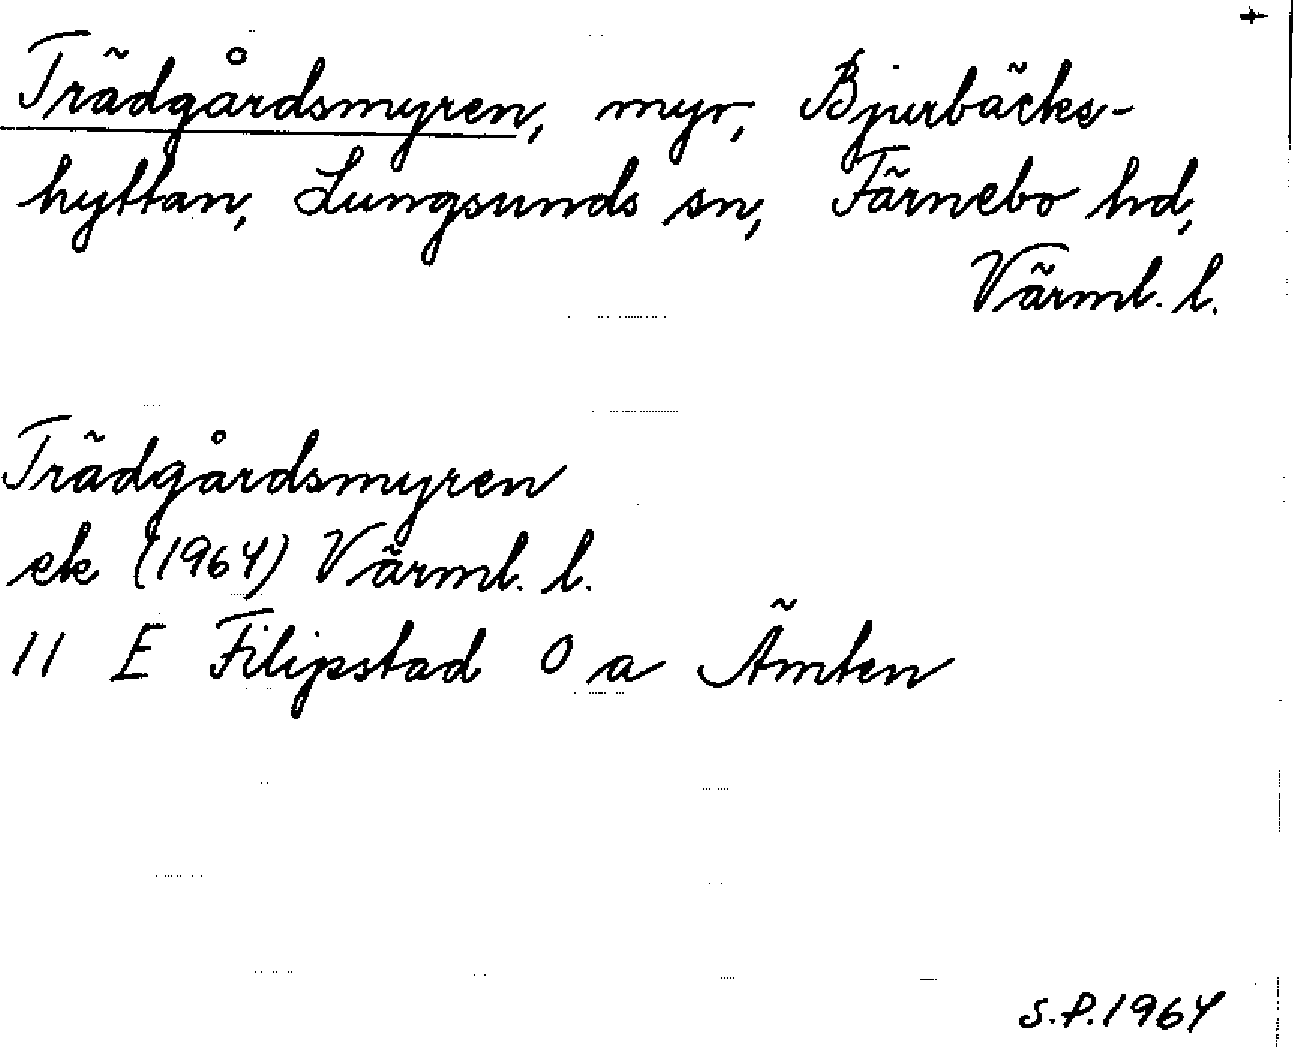 Trädgårdsmyren, myr, Bjurbäcks-
hyttan, Lungsunds sn, Färnebo hd,
Värml. l.
Trädgårdsmyren
ek (1964) Värml. l.
11 E Filipstad 0 a Ämten
S.P. 1964